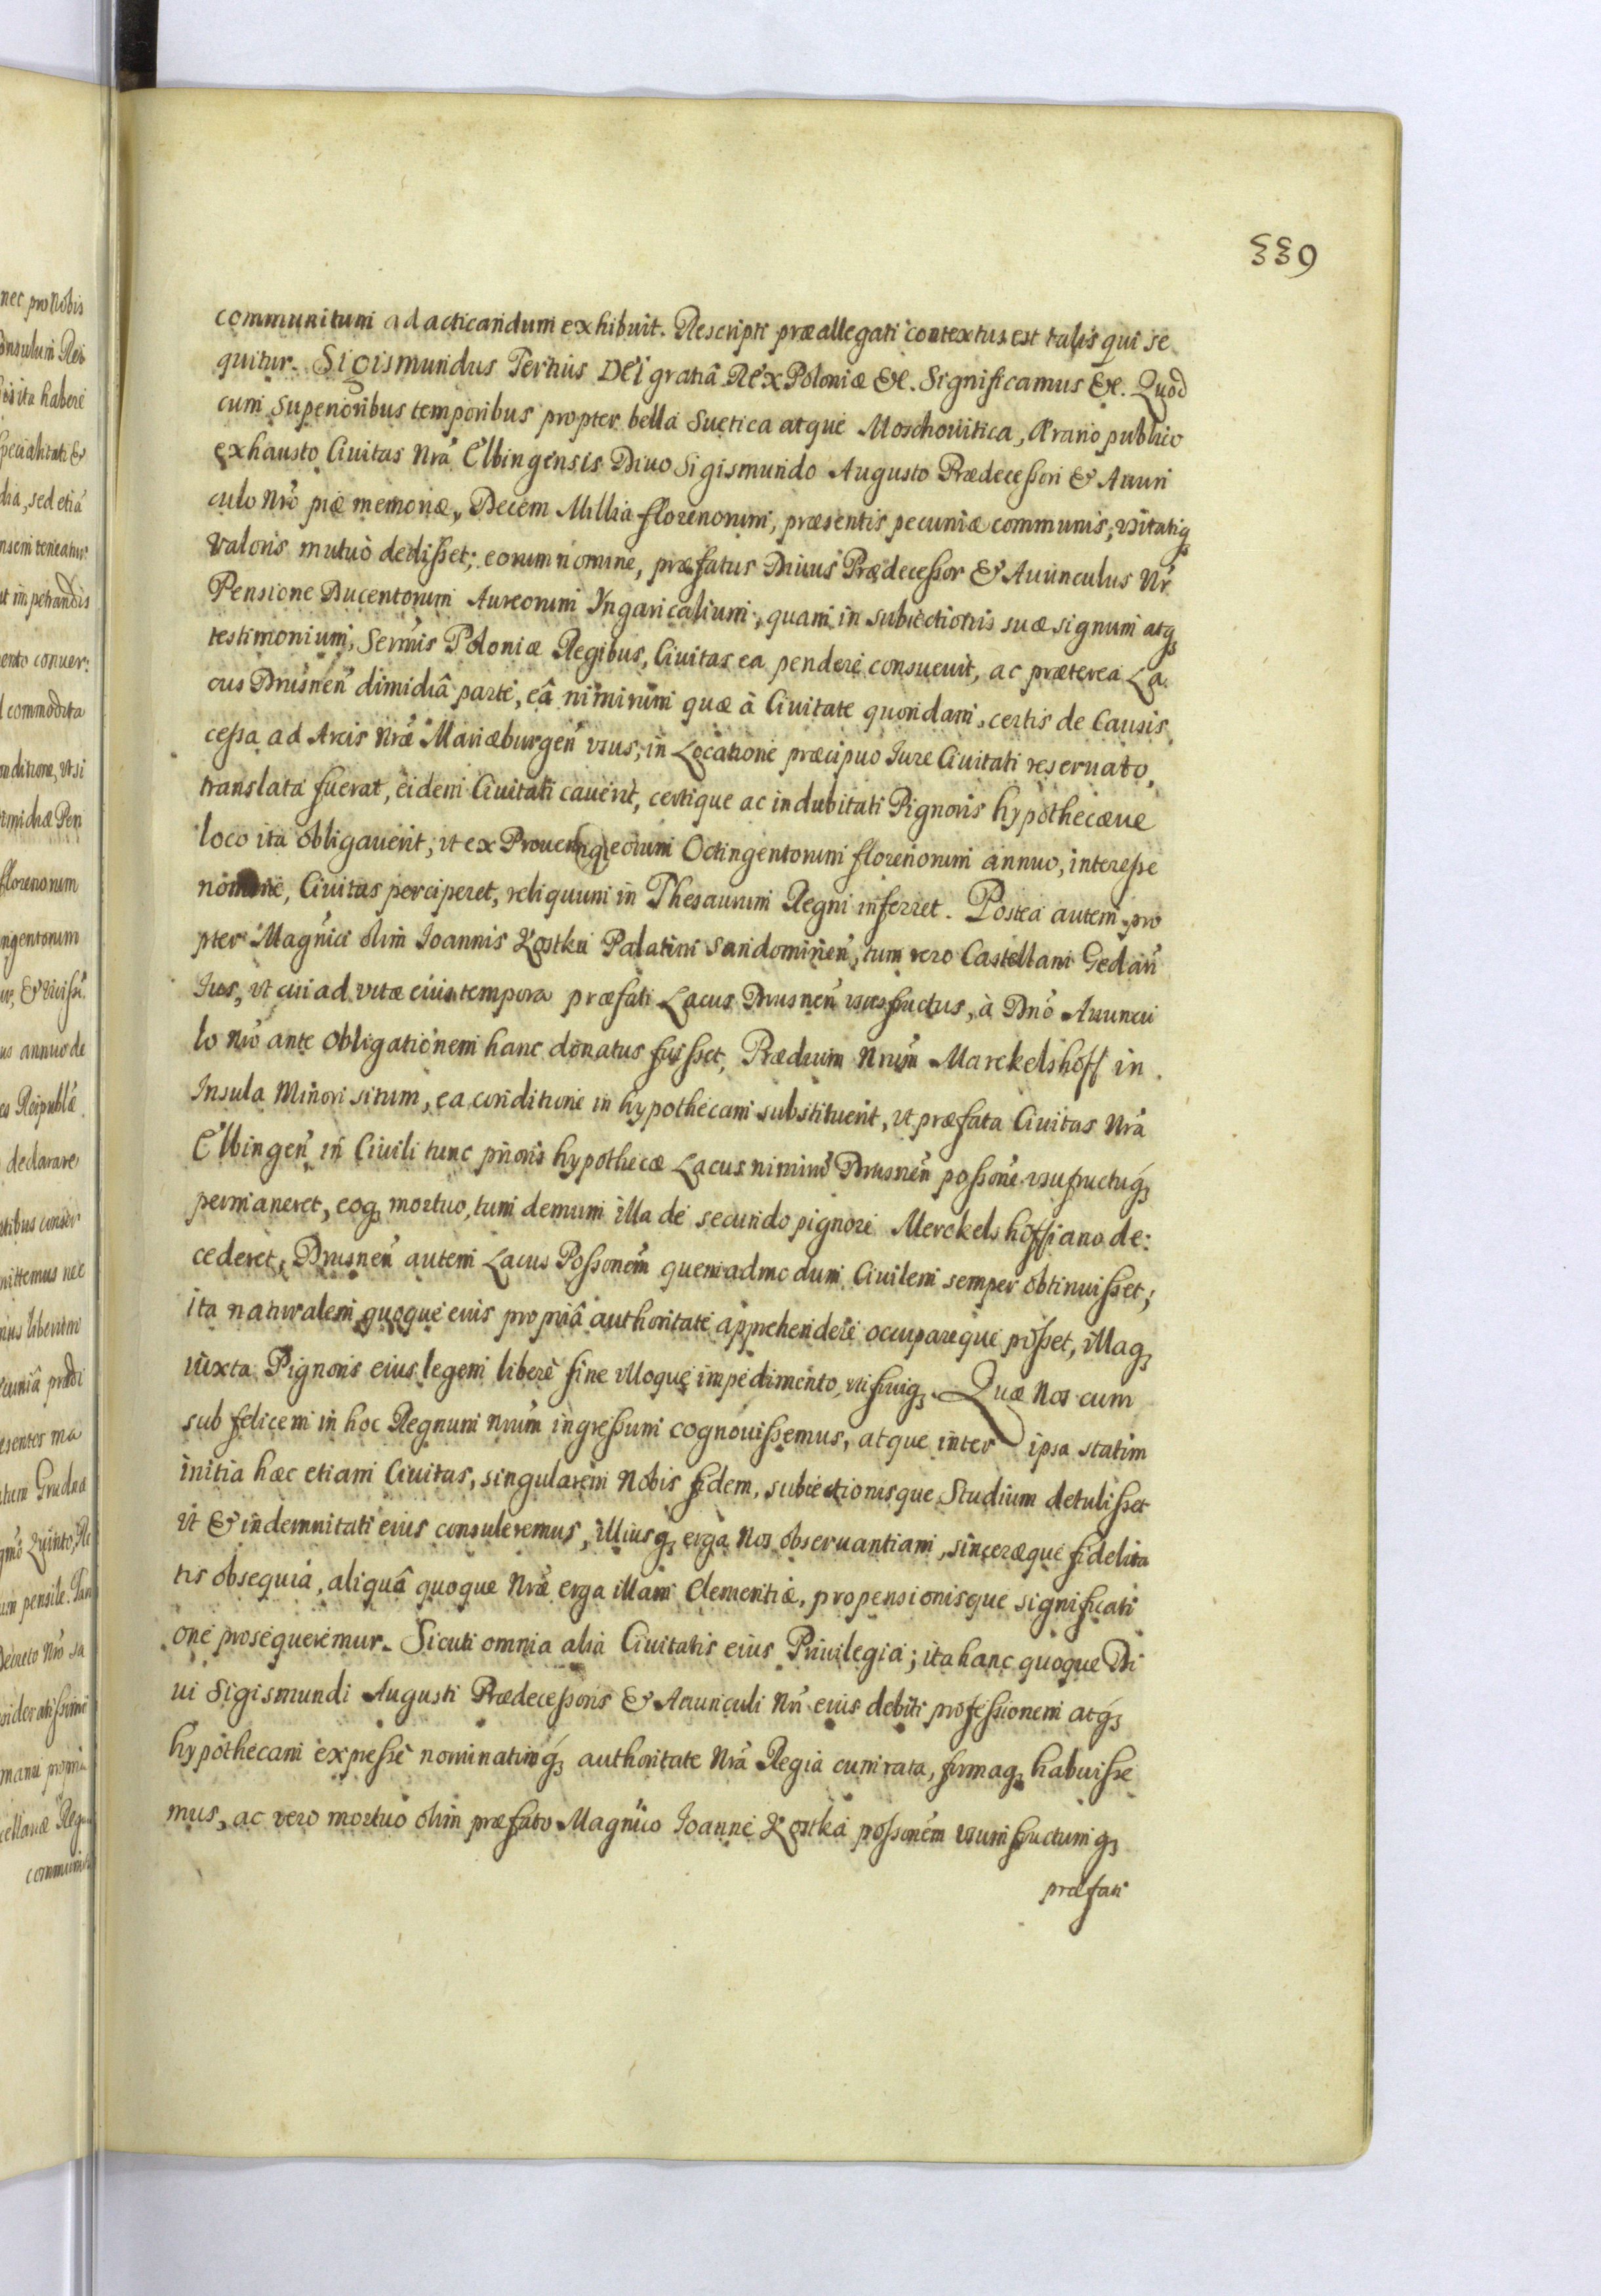 339
communitum ad acticandum exhibuit. Rescripti præallegati contextus est talis qui se
quitur. Sigismundus Tertius DEI gratiâ REX Poloniæ &c. Significamus &c. Quod
cum superioribus temporibus propter bella Suetica atque Moschouitica, Ærario publico
exhausto Ciuitas Nrã Elbingensis Diuo Sigismundo Augusto Prædecessori & Auun
culo Nrõ piæ memoriæ, Decem Millia florenorum, præsentis pecuniæ communis, vsitatiq₃
Valoris mutuò dedisset; eorum nomine, præfatus Diuus Prædecessor & Auunculus Nr̃
Pensione Ducentorum Aureorum Vngaricalium, quam in subiectionis suæ signum atq₃
testimonium, Serm̃is Poloniæ Regibus, Ciuitas ea pendere consueuit, ac præterea La
cus Drusneñ dimidiâ parte, eâ nimirum quæ à Ciuitate quondam, certis de Causis
cessa ad Arcis Nræ̃ Mariæburgeñ vsus, in Locatione præcipuo Iure Ciuitati reseruato,
translata fuerat, eidem Ciuitati cauerit, certique ac indubitati Pignoris hypothecæue
loco ita obligauerit, vt ex Prouentiq₃ eorum Octingentorum florenorum annuo, interesse
nomine, Ciuitas perciperet, reliquum in Thesaurum Regni inferret. Postea autem pro
pter Magnĩci olim Ioannis Kostka Palatini Sandomirieñ, tum vero Castellani Gedañ
Ius, vt cui ad vitæ eius tempora præfati Lacus Drusneñ vsusfructus, à Dnõ Auuncu
lo nrõ ante obligationem hanc donatus fuisset, Prædium Nrum̃ Marckelshoff in
Insula Minori situm, ea conditione in hypothecam substituerit, vt præfata Ciuitas Nrã
Elbingeñ in Ciuili tunc prioris hypothecæ Lacus nimirũ Drusneñ possonẽ vsufructuq₃
permaneret, eoq₃ mortuo, tum demum illa de secundo pignore Merckelshoffiano de:
cederet, Drusneñ autem Lacus Possonem̃ quemadmodum Ciuilem semper obtinuisset;
ita naturalem quoque eius propriâ authoritate apprehendere occupareque posset, illaq₃
iuxta Pignoris eius legem liberè sine vlloque impedimento, vti fruiq₃. Quæ Nos cum
sub felicem in hoc Regnum Nrum̃ ingressum cognouissemus, atque inter ipsa statim
initia hæc etiam Ciuitas, singularem Nobis fidem, subiectionisque Studium detulisset
vt & indemnitati eius consuleremus, illiusq₃ erga Nos obseruantiam, sinceræque fidelita
tis obsequia, aliquâ quoque Nræ̃ erga illam Clementiæ, propensionisque significati
one prosequeremur. Sicuti omnia alia Ciuitatis eius Priuilegia; ita hanc quoque Di
ui Sigismundi Augusti Prædecessoris & Auunculi Nrĩ eius debiti professionem atq₃
hypothecam expresse nominatimq₃ authoritate Nrã Regia cum rata, firmaq₃ habuisse
mus, ac vero mortuo olim præfato Magnĩco Ioanne Kostka possonem̃ vsumfructumq₃
præfati